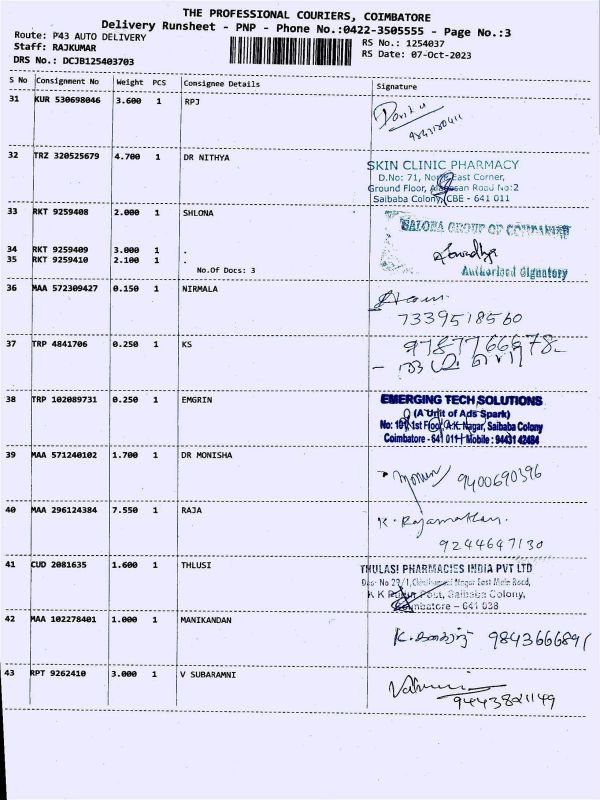 THE PROFESSIONAL COURIERS, COIMBATORE
Delivery Runsheet - PNP - Phone No.:0422-3505555 - Page No.:3
Route: P43 AUTO DELIVERY
Staff: RAJKUMAR
DRS No.: DCJB125403703
RS No.: 1254037
RS Date: 07-Oct-2023
S No Consignment No Weight PCS Consignee Details Signature
31 KUR 530698046 3.600 1 RPJ
32 TRZ 320525679 4.700 1 DR NITHYA
SKIN CLINIC PHARMACY
D.No: 71, North East Corner,
Ground Floor, Road No:2
Saibaba Colony, CBE - 641 011
33 RKT 9259408 2.000 1 SHLONA
SALONA GROUP OF COMPANIES
34 RKT 9259409 3.000 1 .
35 RKT 9259410 2.100 1 .
No.Of Docs: 3
Authorised Signatory
36 MAA 572309427 0.150 1 NIRMALA
7339518560
37 TRP 4841706 0.250 1 KS
9787766678
38 TRP 102089731 0.250 1 EMGRIN
EMERGING TECH SOLUTIONS
(A Unit of Ads Spark)
No: 101, 1st Floor, A.K. Nagar, Saibaba Colony
Coimbatore - 641 011 Mobile : 94431 42484
39 MAA 571240102 1.700 1 DR MONISHA
9400690396
40 MAA 296124384 7.550 1 RAJA
K. Rajamathan.
9244647130
41 CUD 2081635 1.600 1 THLUSI
THULASI PHARMACIES INDIA PVT LTD
Door No 29/1, Nagar East Main Road,
K K Pudur Post, Saibaba Colony,
Coimbatore - 641 038
42 MAA 102278401 1.000 1 MANIKANDAN
9843666891
43 RPT 9262410 3.000 1 V SUBARAMNI
9443821149